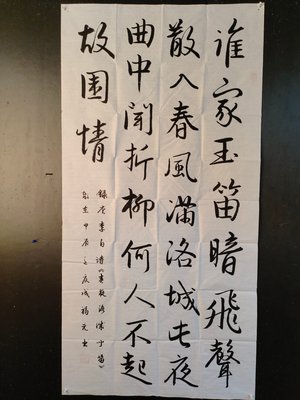 誰家玉笛暗飛聲
散入春風滿洛城此夜
曲中聞折柳何人不起
故園情
錄唐李白詩《春夜洛城聞笛》
歲在甲辰之